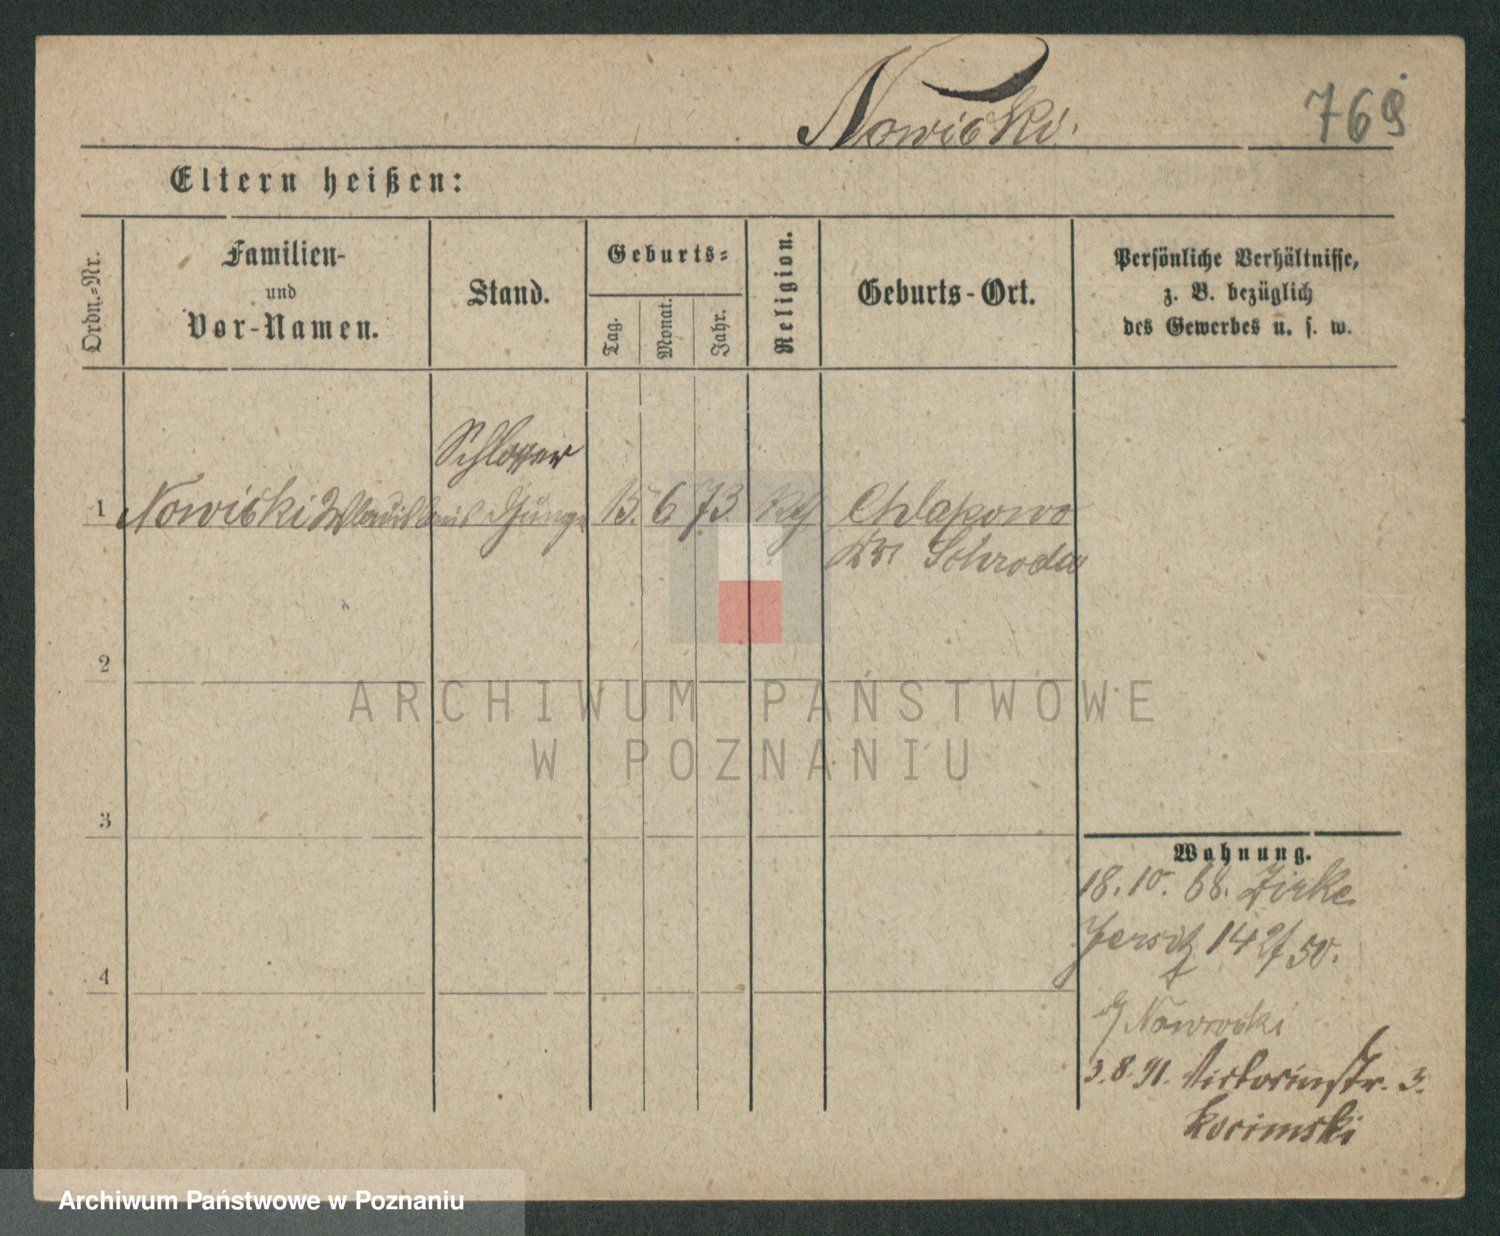 Nowicki.
769
Eltern heißen:
Ordn.-Nr.
Familien-
und
Vor-Namen.
Stand.
Geburts-
Tag.
Monat.
Jahr.
Religion.
Geburts-Ort.
Persönliche Verhältnisse,
z. B. bezüglich
des Gewerbes u. s. w.
Schlosser
1 Nowicki Wladislaus 15. 6 73 Kth Chlapowo
Krs Schroda
2
ARCHIWUM PAŃSTWOWE
W POZNANIU
3
Wohnung.
18. 10. Zirke
Jersitz 142/50.
4
Nowicki
3. 8. 91. Victoriastr. 3.
Archiwum Państwowe w Poznaniu